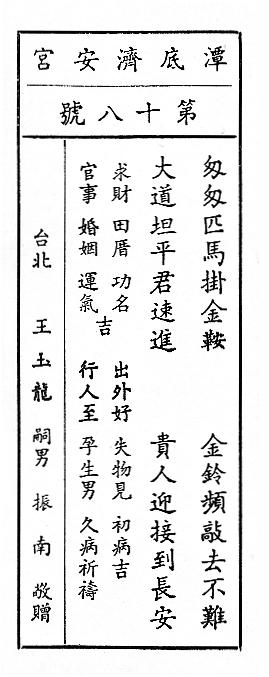 潭底濟安宮
第十八號
匆匆匹馬掛金鞍　金鈴頻敲去不難
大道坦平君速進　貴人迎接到長安
求財　田厝　功名　出外好　失物見　初病吉
吉
官事　婚姻　運氣　行人至　孕生男　久病祈禱
台北　王玉龍　嗣男　振南　敬贈